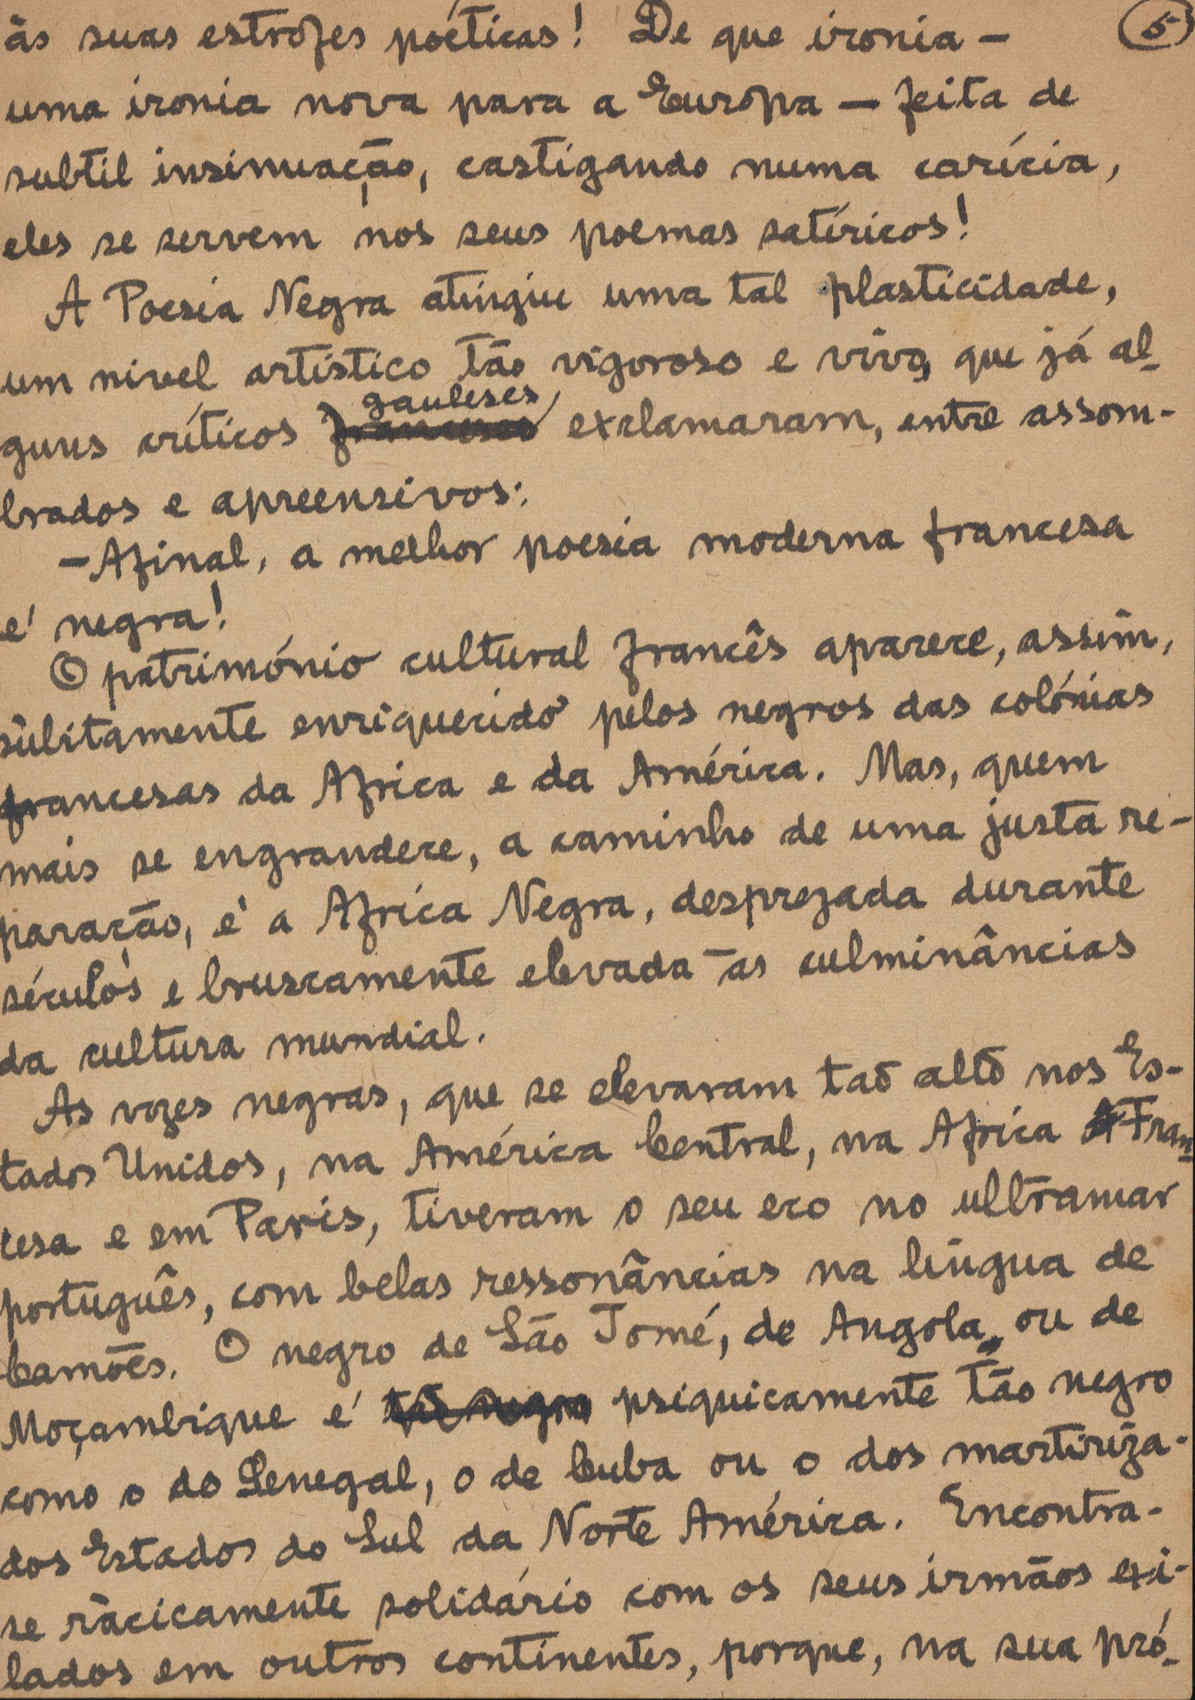 às suas estrofes poéticas! De que ironia — 5
uma ironia nova para a Europa — feita de
subtil insinuação, castigando numa carícia,
eles se servem nos seus poemas satíricos!
A Poesia Negra atingiu uma tal plasticidade,
um nivel artístico tão vigoroso e vivo, que já al-
gauleses
guns críticos franceses exclamaram, entre assom-
brados e apreensivos:
— Afinal, a melhor poesia moderna francesa
é negra!
O património cultural francês aparece, assim,
sùbitamente enriquecido pelos negros das colónias
francesas da Africa e da América. Mas, quem
mais se engrandece, a caminho de uma justa re-
paração, é a Africa Negra, desprezada durante
séculos e bruscamente elevada às culminâncias
da cultura mundial.
As vozes negras, que se elevaram tão alto nos Es-
tados Unidos, na América Central, na Africa Fran-
cesa e em Paris, tiveram o seu eco no ultramar
português, com belas ressonâncias na língua de
Camões. O negro de São Tomé, de Angola, ou de
Moçambique é tão negro psiquicamente tão negro
como o do Senegal, o de Cuba ou o dos martiriza-
dos Estados do Sul da Norte América. Encontra-
se ràcicamente solidário com os seus irmãos exi-
lados em outros continentes, porque, na sua pró-